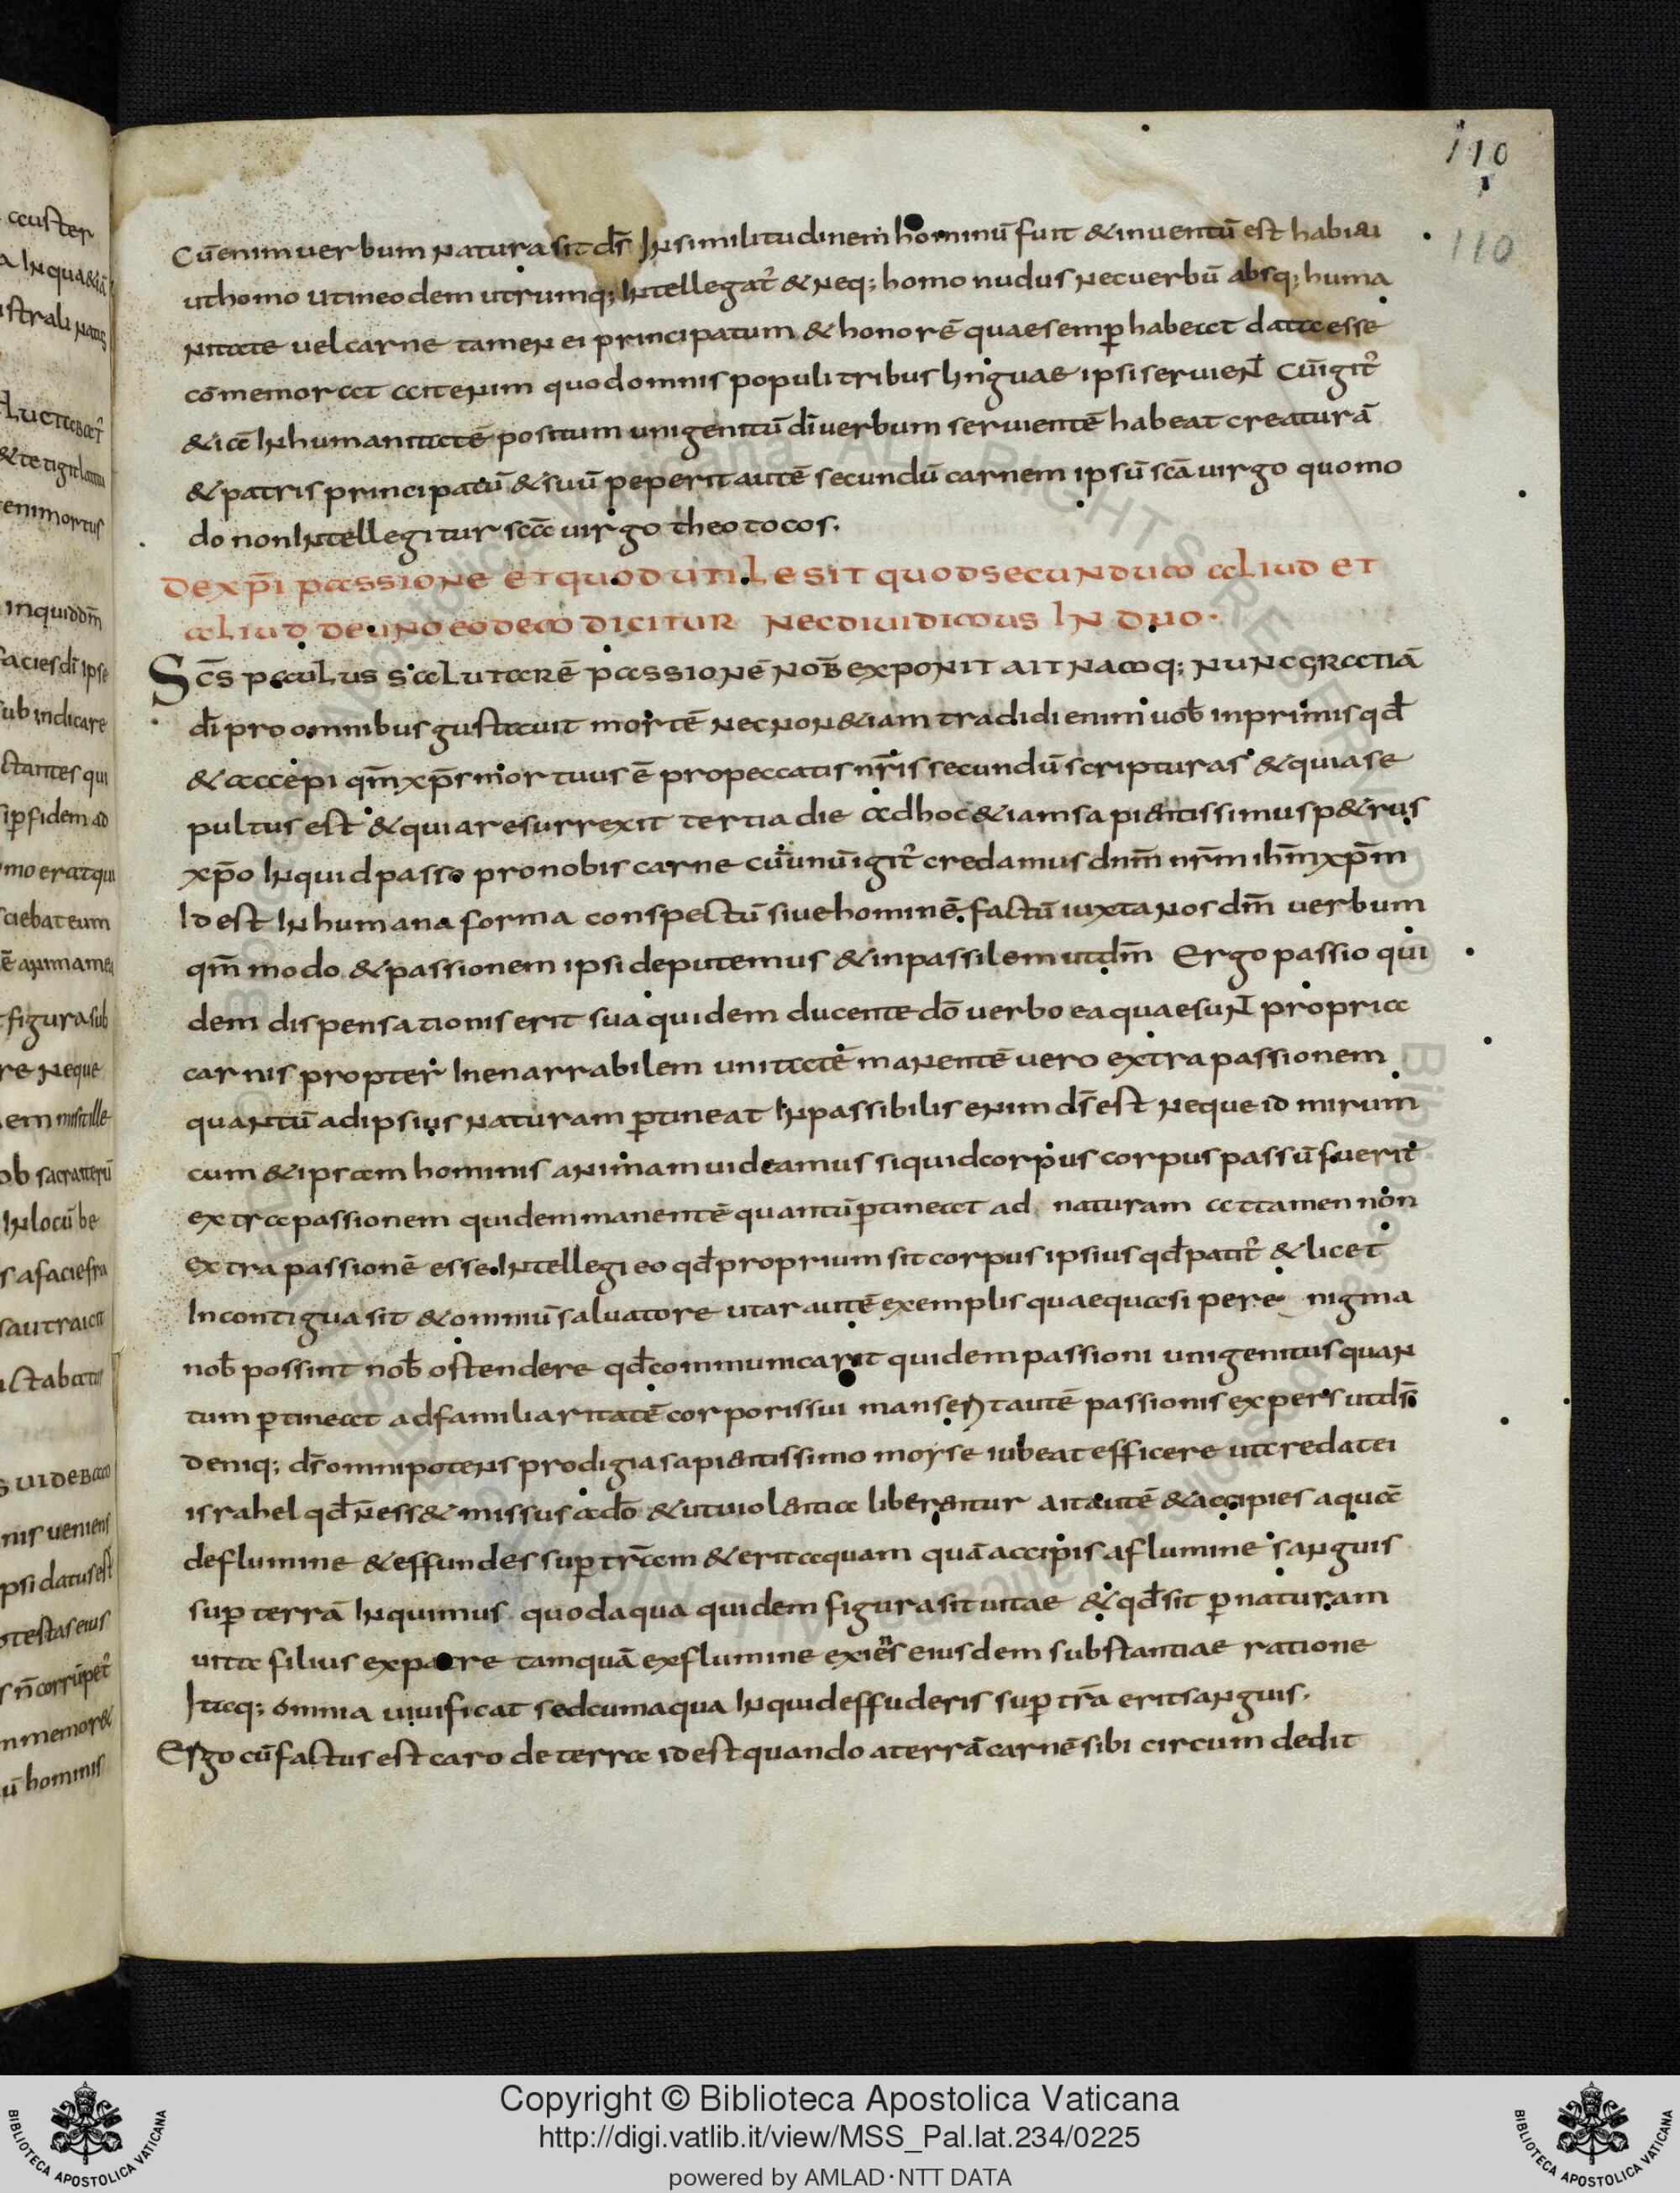 110
110
Cū enim uerbum natura sit d̄s In similitudinem hominū fuit & inuentū est habitu
ut homo ut in eodem utrumq; Intellegat̄ & neq; homo nudus nec uerbū absq; huma
nitate uel carne tamen ei principatum & honorē quae semp̄ habeat data esse
cōmemorat ait enim quod omnis populi tribus linguae ipsi seruient̄ Cū igit̄
& iā In humanitatē positum unigenitū dī uerbum seruientē habeat creaturā
& patris principatū & suū peperit autē secundū carnem ipsū scā uirgo quomo
do non Intellegitur scā uirgo theotocos.
DE XP̄I PASSIONE ET QUOD UTILE SIT QUOD SECUNDUM ALIUD ET
ALIUD DE UNO EODEM DICITUR NEC DIUIDIMUS IN DUO.
Sc̄s paulus salutarē passionē nob̄ exponit ait namq; nunc gratiā
dī pro omnibus gustauit mortē nec non & iam tradidi enim uob̄ inprimis qd̄
& accepi qm̄ xp̄s mortuus ē pro peccatis nr̄is secundū scripturas & quia se
pultus est & quia resurrexit tertia die adhoc & iam sapi&ntissimus p&rus
xp̄o Inquid passo pro nobis carne cū unū igit̄ credamus dnm̄ nr̄m ih̄m xp̄m
Id est In humana forma conspectū siue hominē factū iuxta nos dm̄ uerbum
qm̄ modo & passionem ipsi deputemus & inpassilem ut dm̄ Ergo passio qui
dem dispensationis erit sua quidem ducente dō uerbo ea quae sunt propria
carnis propter Inenarrabilem unitatē manentē uero extra passionem
quantū ad ipsius naturam p̄tineat Inpassibilis enim d̄s est neque id mirum
cum & ipsam hominis animam uideamus si quid corpus corpus passū fuerit
extra passionem quidem manentē quantū p̄tineat ad naturam attamen non
extra passionē esse Intellegi eo qd̄ proprium sit corpus ipsius qd̄ patit̄ & licet
In contigua sit & omniū saluatore utar autē exemplis quae quasi per e nigma
nob̄ possint nob̄ ostendere qd̄ communicarit quidem passioni unigenitus quan
tum p̄tineat ad familiaritatē corporis sui manserit autē passionis expers ut d̄s
deniq; d̄s omnipotens prodigia sapi&ntissimo moyse iubeat efficere ut credatei
israhel qd̄ n̄ ess& missus a dō & ut uiol&ntia liber&ntur ait autē & accipies aquā
de flumine & effundes sup̄ tr̄am & erit aquam quā accipis a flumine sanguis
sup̄ terrā Inquimus quod aqua quidem figura sit uitae & qd̄ sit p̄ naturam
uita filius ex patre tamquā ex flumine exiens eiusdem substantiae ratione
Itaq; omnia uiuificat sed cum aqua Inquid effuderis sup̄ tr̄a erit sanguis.
Ergo cū factus est caro de terra id est quando a terrā carnē sibi circumdedit
Copyright © Biblioteca Apostolica Vaticana
http://digi.vatlib.it/view/MSS_Pal.lat.234/0225
powered by AMLAD·NTT DATA
BIBLIOTECA APOSTOLICA VATICANA
BIBLIOTECA APOSTOLICA VATICANA